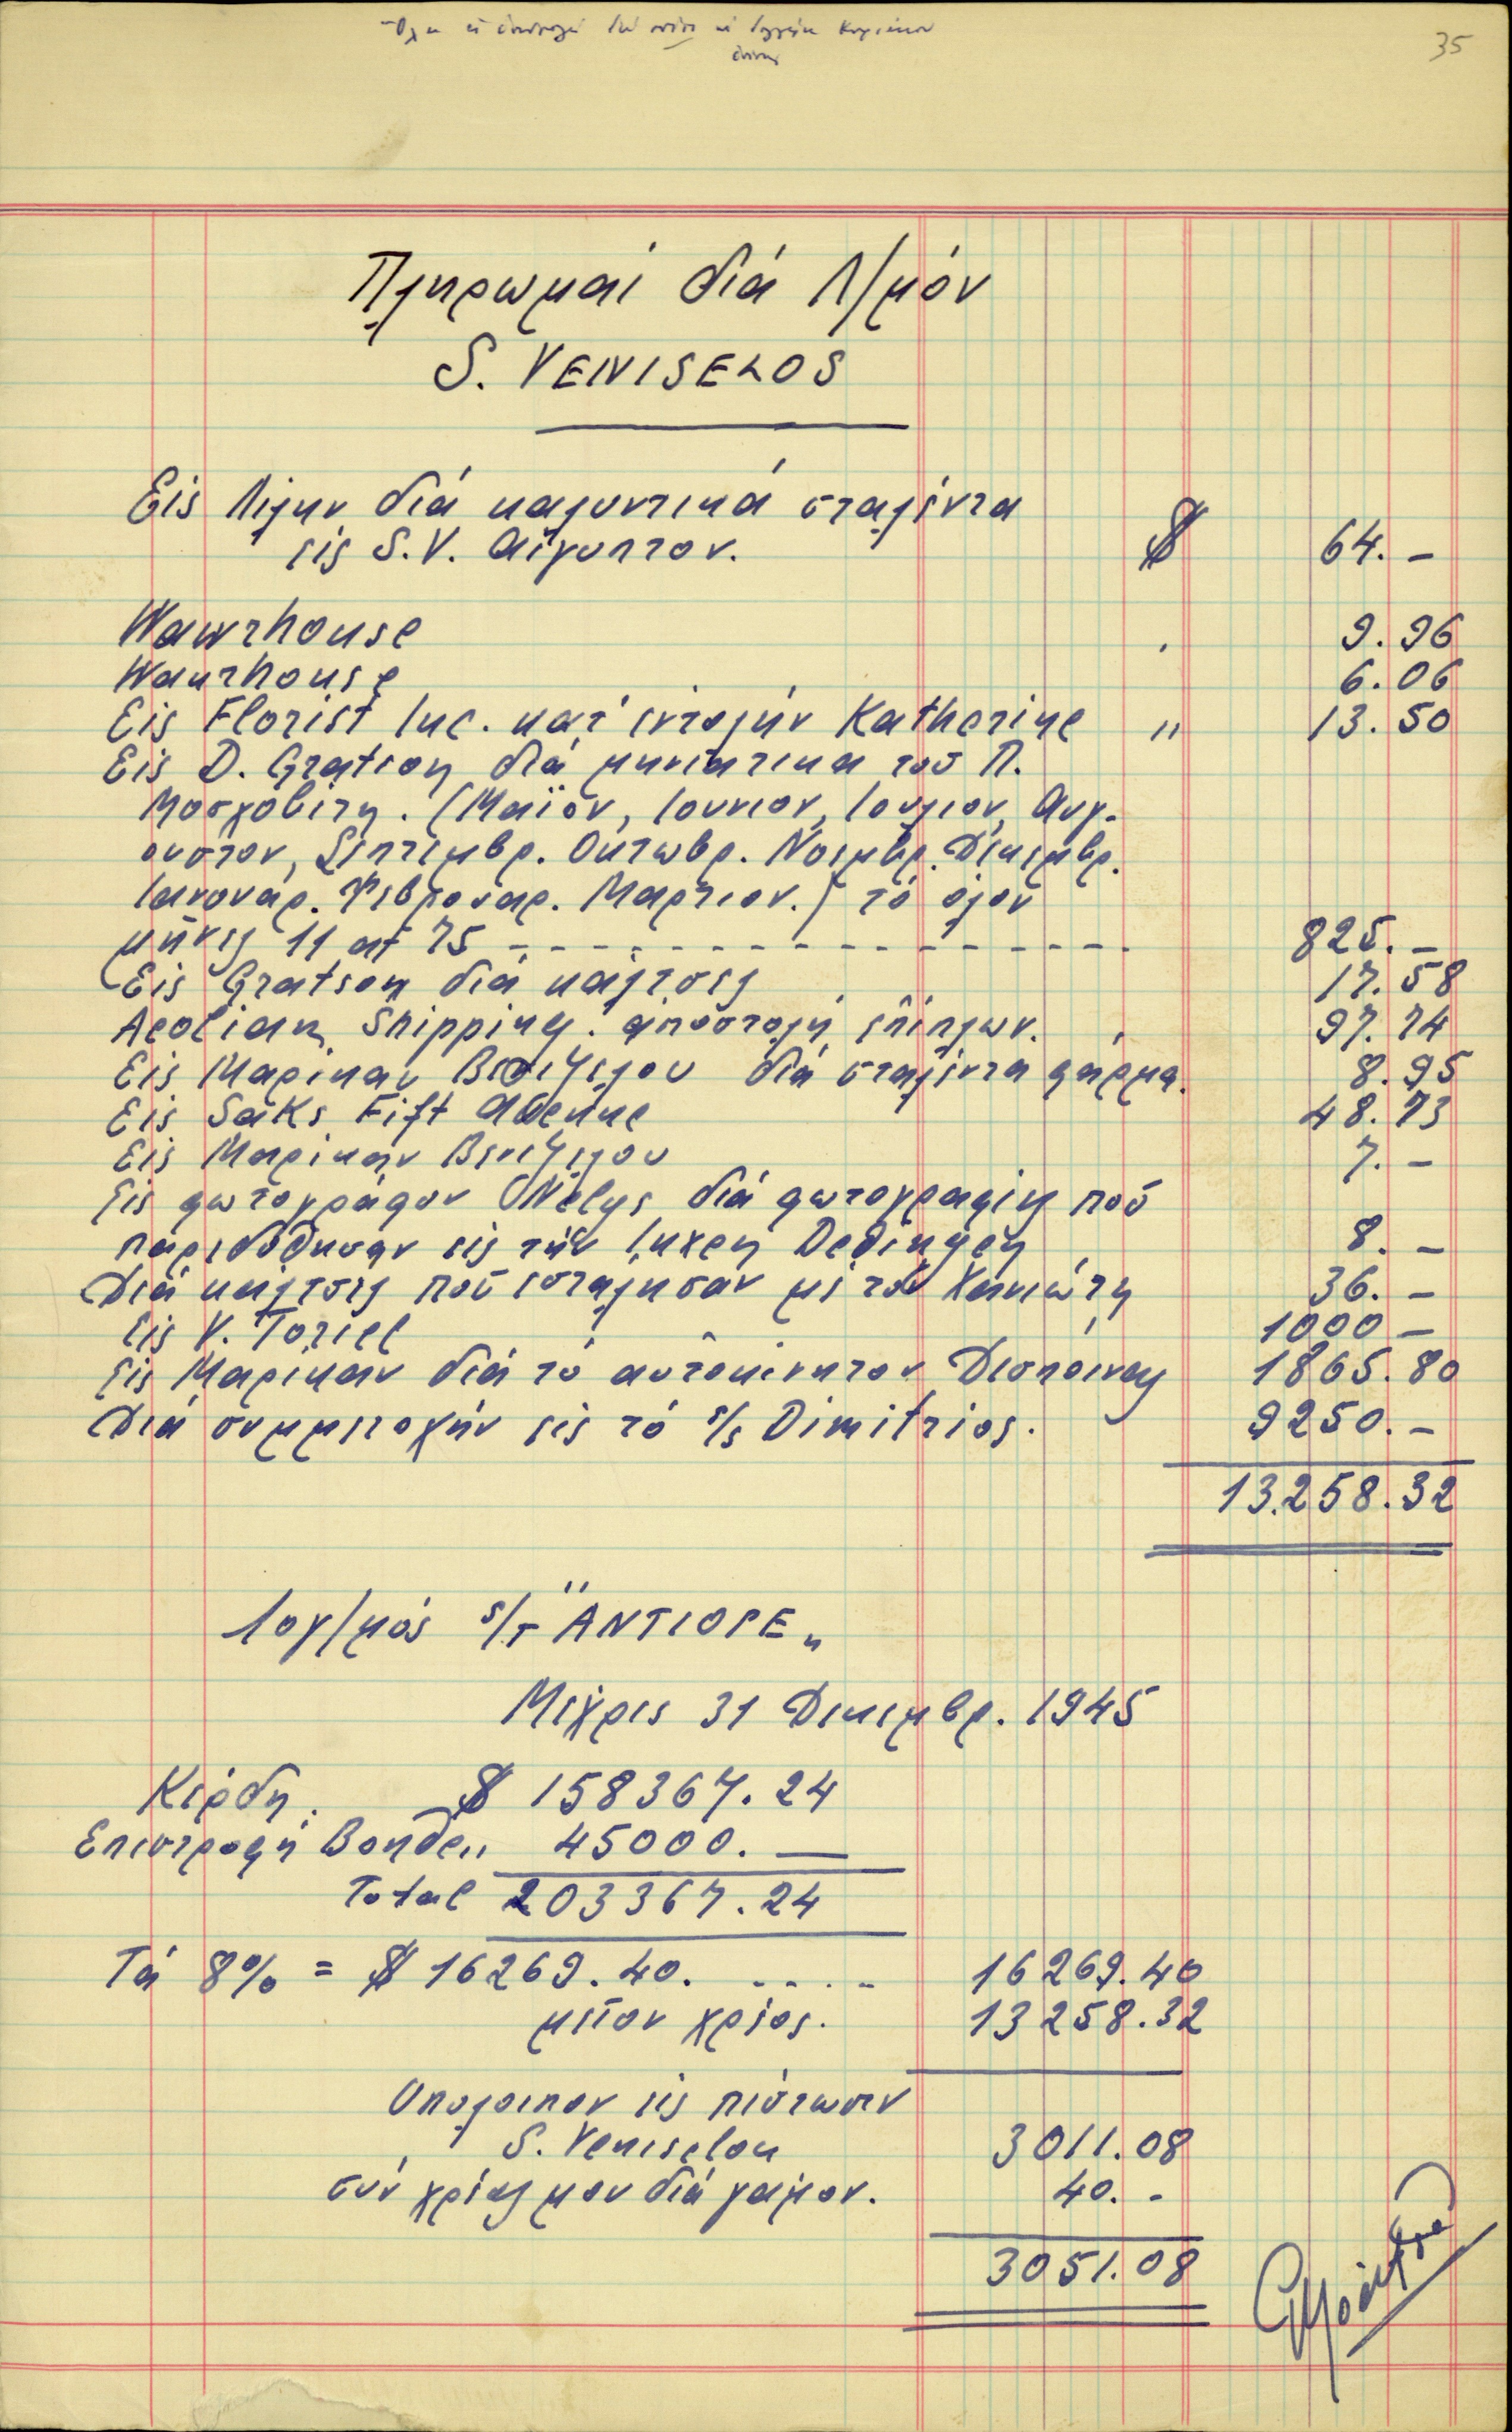 35
Πληρωμαί διά Λ/μόν
S. VENISELOS
Εις Λιλην διά καλυντικά σταλέντα
εις S.V. Αίγυπτον. $ 64. –
Wawrhouse 9.96
Waurhouse 6.06
Εις Florist Inc. κατ' εντολήν Katherine " 13.50
Εις D. Gratson διά μηνιατικα του Π.
Μοσχοβίτη. (Μαϊον, Ιουνιον, Ιουλιον, Αυγ-
ουστον, Σεπτεμβρ. Οκτωβρ. Νοεμβρ. Δεκεμβρ.
Ιανουαρ. Φεβρουαρ. Μαρτιον.) τό όλον
μήνες 11 at 75 – – – – – – – – – – – – – – – – 825. –
Εις Gratson διά κάλτσες 17.58
Aeolian Shipping. αποστολή επίπλων. 97.74
Εις Μαρίκαν Βενιζελου διά σταλέντα φάρμα. 8.95
Εις Saks Fift Avenue 48.73
Εις Μαρίκαν Βενιζελου 7. –
Εις φωτογράφον Nelys διά φωτογραφίες πού
παρεδόθησαν εις τήν 8. –
Διά κάλτσες πού εσταλησαν μέ τόν Χανιώτη 36. –
Εις V. Toriel 1000 –
Εις Μαρίκαν διά τό αυτοκίνητον Δεσποίνας 1865.80
Διά συμμετοχήν εις τό s/s Dimitrios. 9250. –
13.258.32
Λογ/μός s/T "ANTIOPE"
Μέχρις 31 Δεκεμβρ. 1945
Κέρδη. $ 158367.24
Επιστροφή Bonde " 45000. —
Total 203367.24
Τά 8% = $ 16269.40. – – – – – 16269.40
μείον χρέος. 13258.32
Υπόλοιπον εις πίστωσιν
S. Veniselou 3011.08
συν χρέος μου διά γάμον. 40. –
3051.08